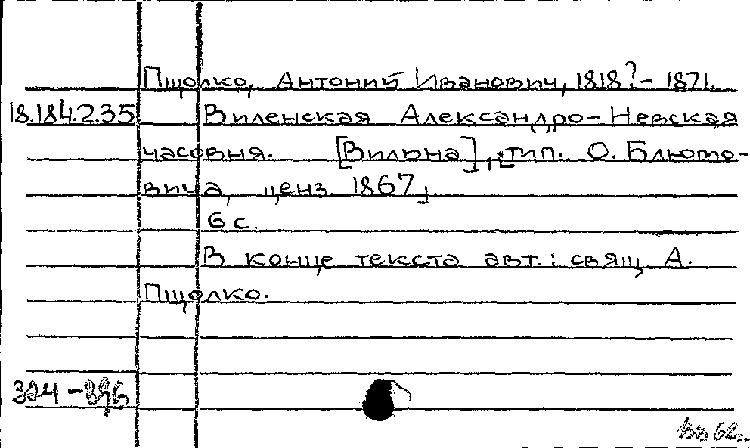 Пщолко, Антоний Иванович, 1818?-1871.
18.184.2.35 Виленская Александро-Невская
часовня. [Вильна], тип. О. Блюмо-
вича, ценз. 1867.
6 с.
В конце текста авт.: свящ. А.
Пщолко.